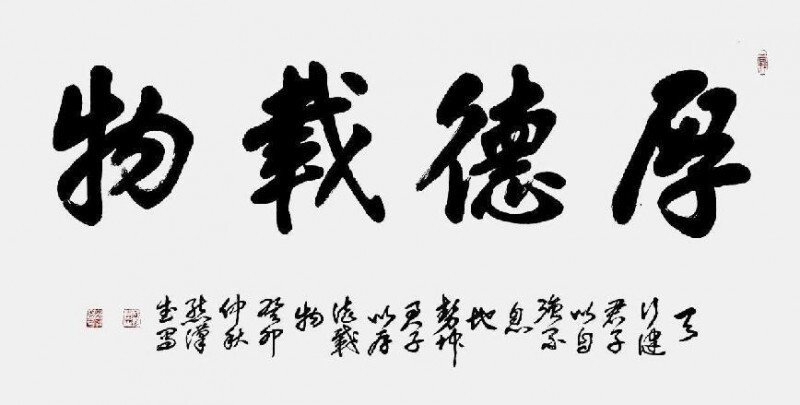 厚德載物
天
行健
君子
以自
強不
息
地
勢坤
君子
以厚
德載
物
癸卯
仲秋